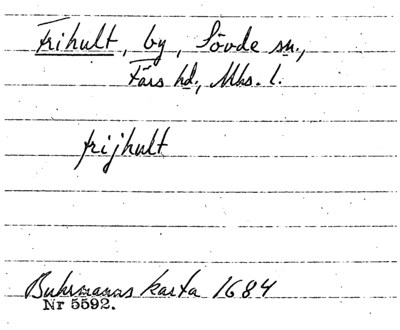 Frihult, by, Sövde sn.,
Färs hd., Mks. l.
frijhult
Buhrmanns karta 1684
Nr 5592.